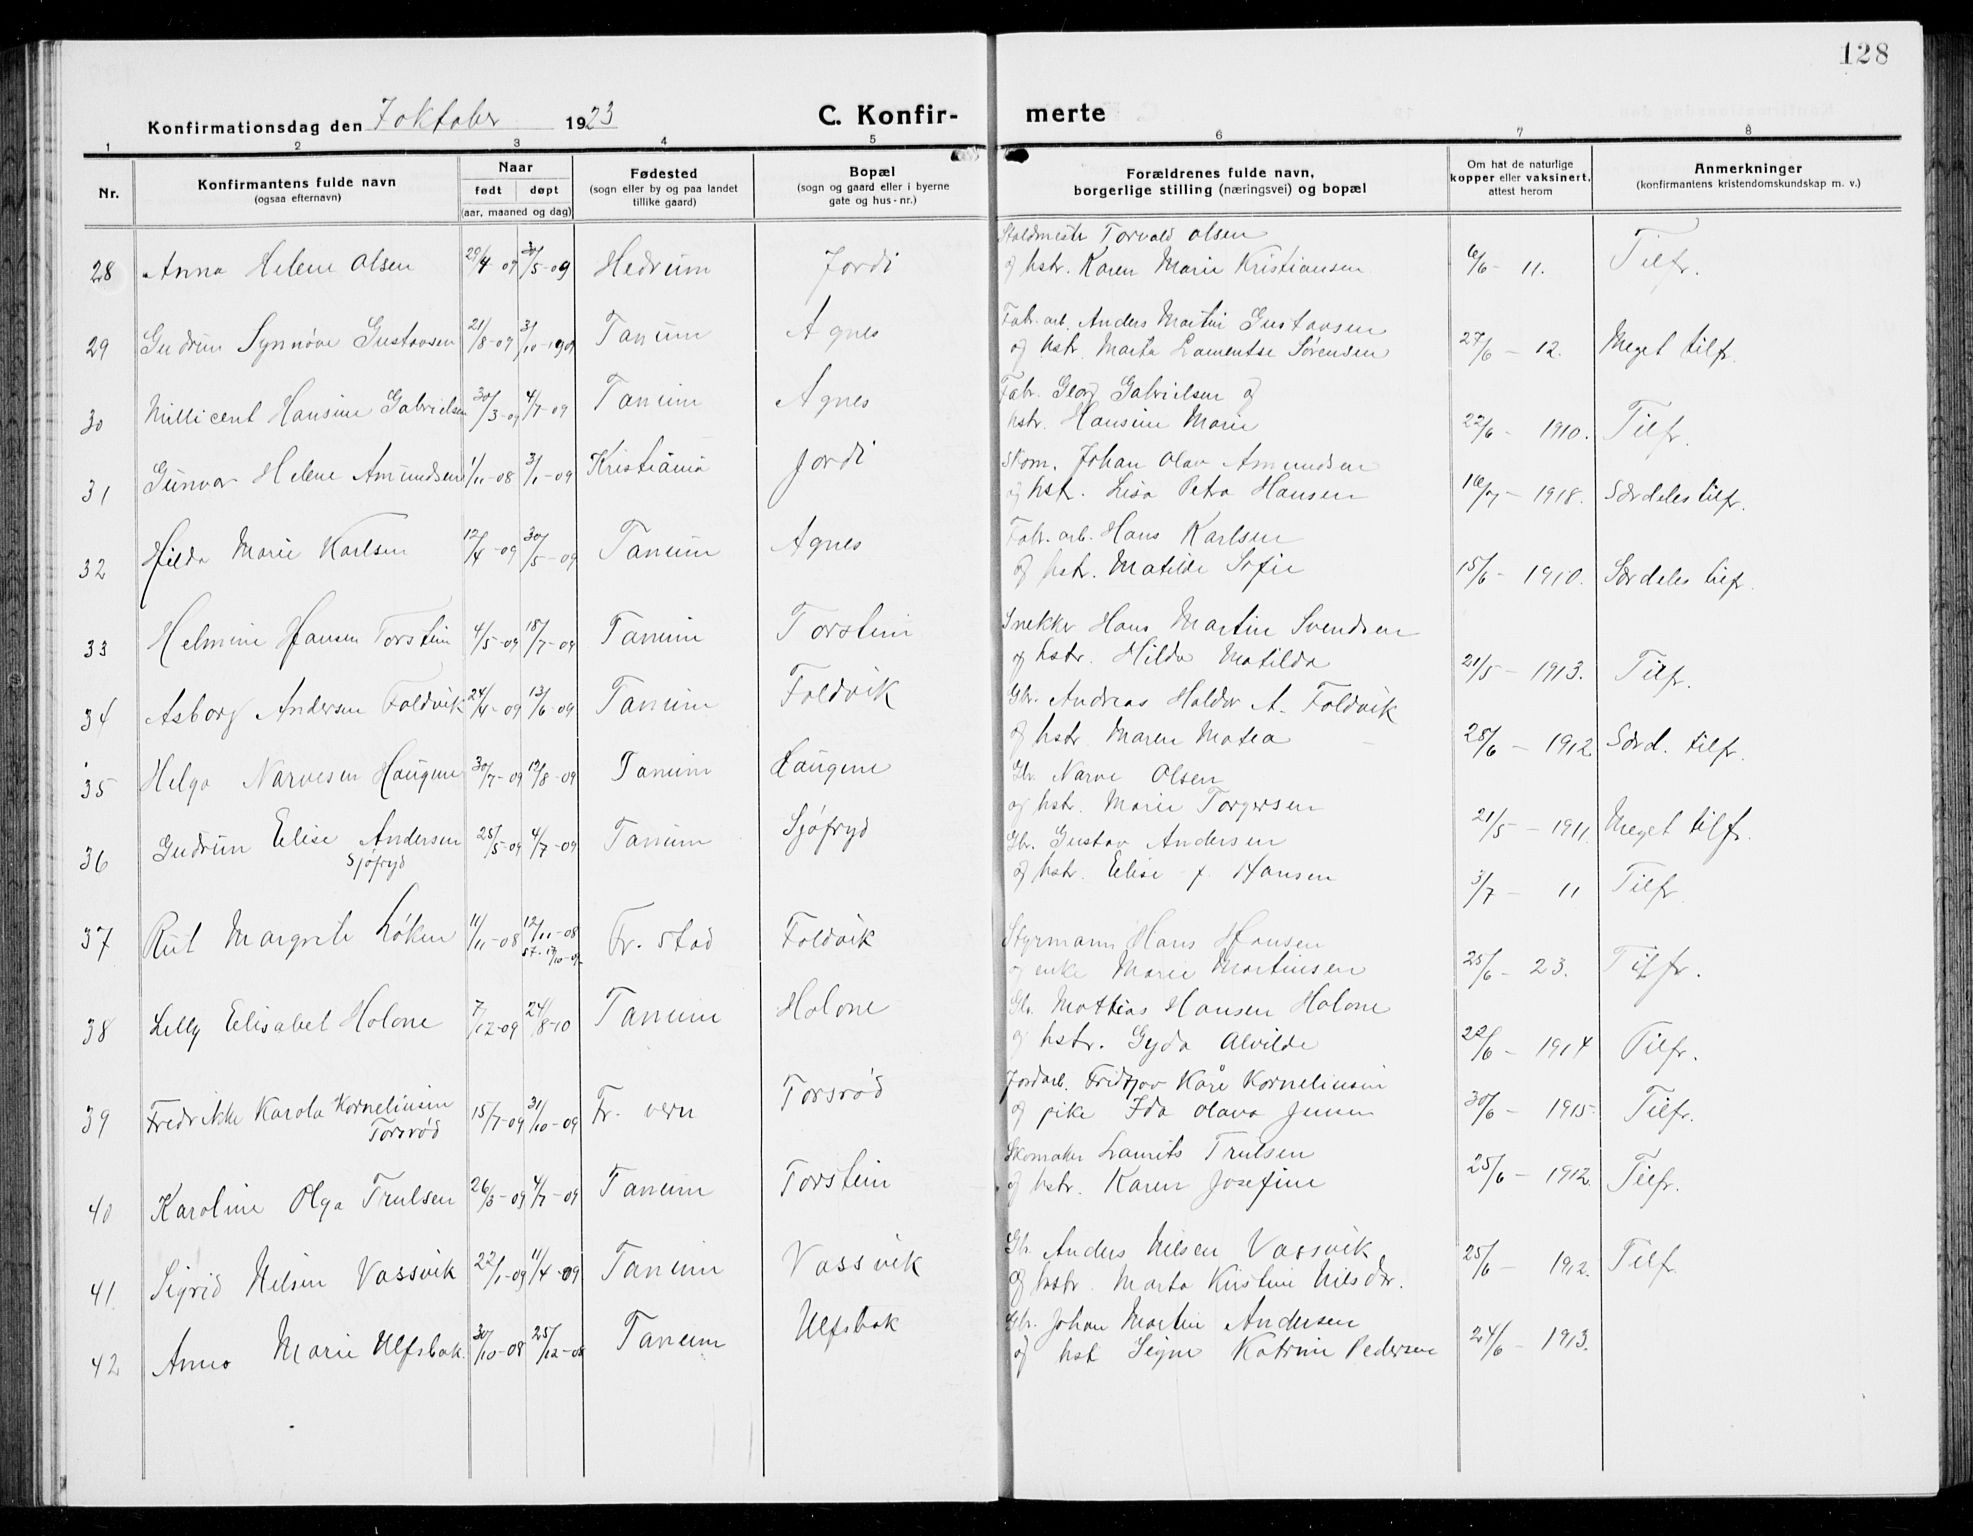 128
Konfirmationsdag den 7 oktober 1923 C. Konfirmerte
1 2 3 4 5 6 7 8
Nr.
Konfirmantens fulde navn
(ogsaa efternavn)
Naar
født døpt
(aar, maaned og dag)
Fødested
(sogn eller by og paa landet
tillike gaard)
Bopæl
(sogn og gaard eller i byerne
gate og hus-nr.)
Forældrenes fulde navn,
borgerlige stilling (næringsvei) og bopæl
Om hat de naturlige
kopper eller vaksinert,
attest herom
Anmerkninger
(konfirmantens kristendomskundskap m. v.)
28 Anna Helene Olsen 29/4-09 31/5-09 Hedrum Jordi
Staldmester Torvald Olsen
og hstr. Karen Marie Kristiansen 6/6 - 11. Tilfr.
29 Gudrun Synnøve Gustavsen 21/8-09 3/10-1909 Tanum Agnes
Fabr. arb. Anders Martin Gustavsen
og hstr. Marta Lamentse Sørensen 27/6 - 12. Meget tilfr.
30 Millicent Hansine Gabrielsen 30/3-09 4/7-09 Tanum Agnes
Fabr. Georg Gabrielsen og
hstr. Hansine Marie 22/6 - 1910. Tilfr.
31 Gunvor Helene Amundsen 1/11-08 3/1-09 Kristiania Jordi
Skom. Johan Olav Amundsen
og hst. Lisa Petra Hansen 16/7 - 1918. Særdeles tilfr.
32 Hilda Marie Karlsen 12/4-09 30/5-09 Tanum Agnes
Fabr. arb. Hans Karlsen
og hstr. Matilde Sofie 15/6 - 1910. Særdeles tilfr.
33 Helmine Hansen Torstein 4/5-09 18/7-09 Tanum Torstein
Snekker Hans Martin Svendsen
og hstr. Hilda Matilda 21/5 - 1913. Tilfr.
34 Asborg Andersen Foldvik 24/4-09 13/6-09 Tanum Foldvik
Gbr. Andreas Haldor A. Foldvik
og hstr. Maren Matea 28/6 - 1912 Særd. tilfr.
35 Helga Narvesen Haugene 30/7-09 12/8-09 Tanum Haugene
Gbr. Narve Olsen
og hstr. Marie Torgersen 21/5 - 1911. Meget tilfr.
36 Gudrun Elise Andersen 25/5-09 4/7-09 Tanum Sjøfryd
Sjøfryd
Gbr. Gustav Andersen
og hstr. Elise f. Hansen 3/7 - 11 Tilfr.
37 Rut Margrete Løken 11/11-08 12/11-08 Fr. stad Foldvik
Styrmann Hans Hansen
og enke Marie Martinsen 25/6 - 23. Tilfr.
38 Lilly Elisabet Holone 7/12-09 24/8-10 Tanum Holone
Gbr. Mathias Hansen Holone
og hstr. Gyda Alvilde 22/6 - 1914 Tilfr.
39 Fredrikke Karola Korneliusen 15/7-09 31/10-09 Fr. vern Torsrød
Torsrød
Jordarb. Fridtjov Kåre Korneliusen
og pike Ida Olava Jensen 30/6 - 1915 Tilfr.
40 Karoline Olga Trulsen 26/3-09 4/7-09 Tanum Torstein
Skomaker Laurits Trulsen
og hstr. Karen Josefine 25/6 - 1912. Tilfr.
41. Sigrid Nilsen Vassvik 22/1-09 11/4-09 Tanum Vassvik
Gbr. Anders Nilsen Vassvik
og hustr. Marta Kristine Nilsdtr. 25/6 - 1912. Tilfr.
42 Anna Marie Ulfsbak. 30/10-08 25/12-08 Tanum Ulfsbak
Gbr. Johan Martin Andersen
og hst Signe Katrine Pedersen 24/6 - 1913.